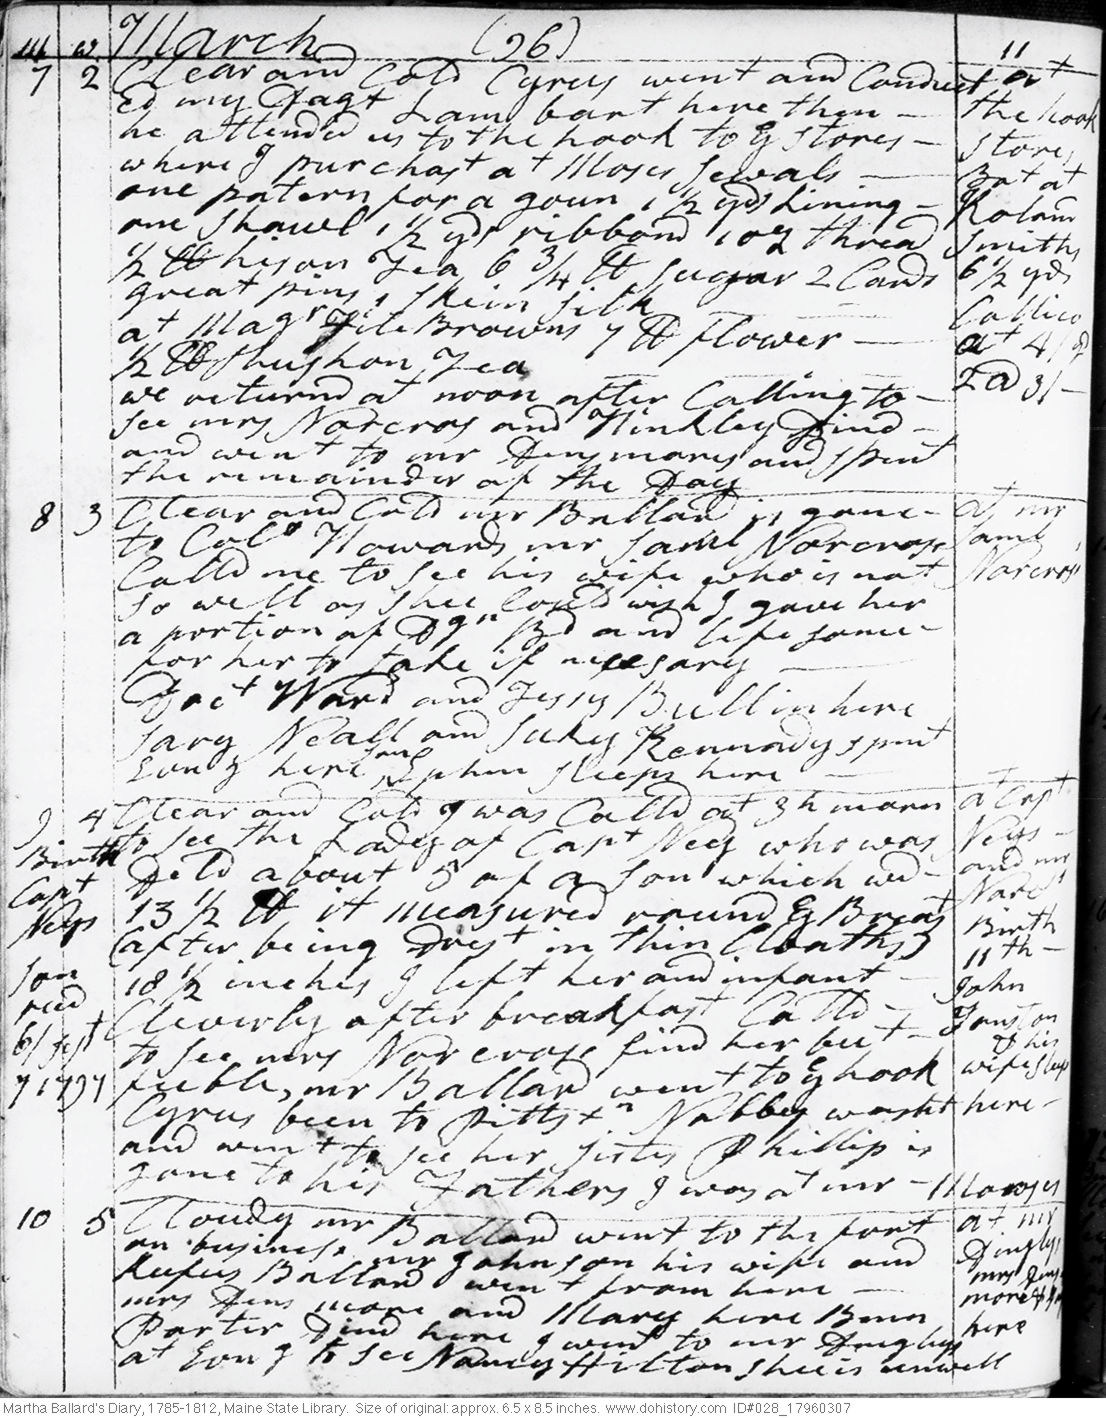 March (26) 11
7 2 Clear and Cold Cyrus went and Conduct at
Ed my Dagt Lambart here then - the hook
he attended us to the hook to ye Stores - Stores
where I purchast at Moses Sewals - But at
one patern for a goun 1 1/2 yds Lining - Rolam
one Shawl 1 1/2 yds ribbond 1 oz thread Smiths
1/2 lb hison Tea 6 3/4 lb Sugar 2 Cards 6 1/2 yds
great pins 1 Skein Silk Callico
at Magr File Browns 7 lb flower - at 4/
1/2 lb Shushon Tea 3/-
we returnd at noon after Calling to -
See mrs Norcros and Hinkley Dind -
and went to mr Densmores and spent
the remainder of the Day
8 3 Clear and Cold mr Ballard is gone - at mr
to Colo Howards mr Saml Norcross Saml
Calld me to see his wife who is not Norcross
So well as Shee Could wish I gave her
a portion of and left some -
for her to take if necesary
Doct Ward and Jessy Bullin here
Sary Neall and Sukey Kennady spent
Evng here Ephm sleeps here
9 4 Clear and Cold I was Calld at 3 h morn at Capt
Birth to see the Lady of Capt Neey who was Neys -
Capt Deld about 5 of a Son which wd - and mr
Neys 13 1/2 lb it measured round ye Breast Norc
(after being Drest in thin Cloaths) Birth
Son 18 1/2 inches I left her and infant - 11th -
recd Cleverly after breakfast Calld - John
6/ to see mrs Norcross find her but - Jonston
& his
1797 feeble, mr Ballard went to ye hook wife sleep
Cyrus been to Pittstn Nabby washt here -
and went to see her sister Phillip is
gone to his Fathers I was at mr - Moroses
10 5 Cloudy mr Ballard went to the fort at mr
on business. mr Johnson his wife and Dinglys
Rufus Ballard went from here - mrs Dens
mrs Densmore and Mary here Benn more
Porter Dind here I went to mr Dinglys here
at Evng to see Nancy Hilton shee is unwell
Martha Ballard's Diary, 1785-1812, Maine State Library. Size of original: approx. 6.5 x 8.5 inches. www.dohistory.com ID#028_17960307